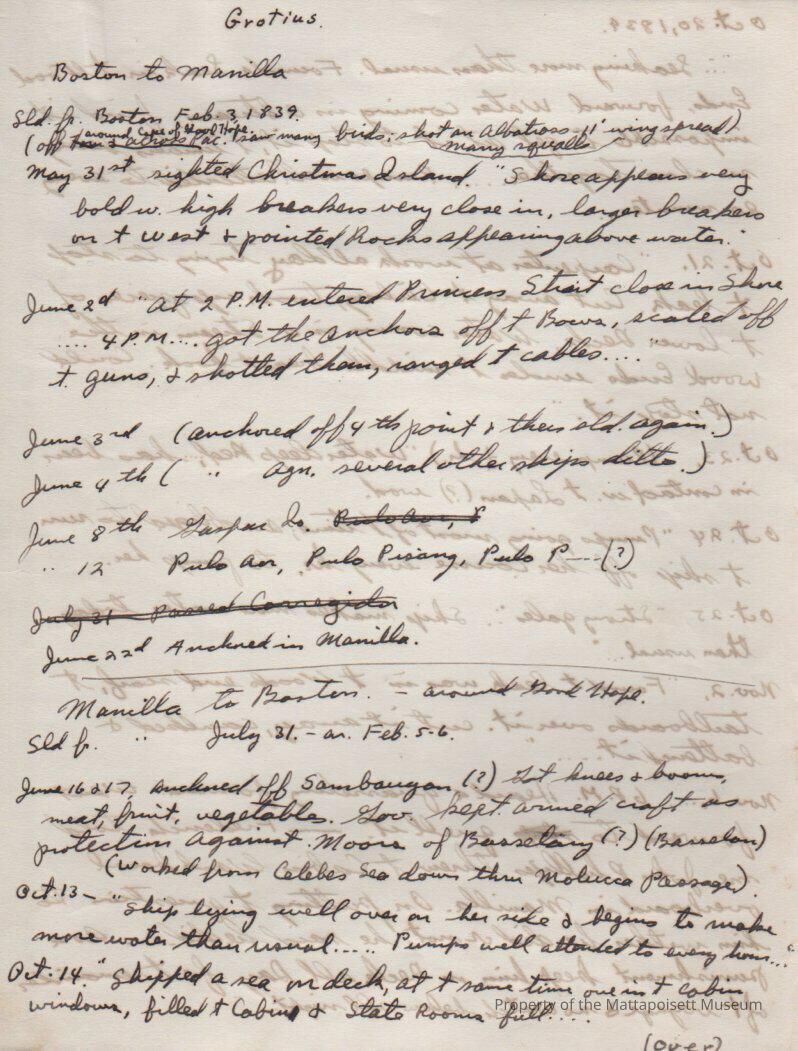 Grotius.
Boston to Manilla
Sld fr. Boston Feb. 3, 1839.
around Cape of Good Hope.
(off across Pac. saw many birds; shot an Albatross, 11' wingspread)
many squalls
May 31st sighted Christmas Island. "Shore appears very
bold w. high breakers very close in, larger breakers
on t west & pointed Rocks appearing above water."
June 2d "At 2 P.M. entered Princess Strait close in Shore
.... 4 P.M.... got the anchors off t Bows, scaled off
t guns, & shotted them, ranged t cables...."
June 3rd (anchored off 4th point & then sld. again.)
June 4th ( " agn. several other ships ditto.)
June 8th Gaspar Is. Pulo Aor, &
" 12 Pulo Aor, Pulo Pisang, Pulo P---(?)
July 31 - Passed Corregidor
June 22d Anchored in Manilla.
Manilla to Boston. - around Good Hope.
Sld fr. " July 31. - ar. Feb. 5-6.
June 16 & 17, Anchored off Sambaugan (?) Got knees & booms,
meat, fruit, vegetables. Gov. kept armed craft as
protection against Moors of Basselany (?) (Basselan)
(worked from Celebes Sea down thru Molucca Passage).
Oct. 13 - "Ship lying well over on her side & begins to make
more water than usual..... Pumps well attended to every hour..."
Oct. 14. "Shipped a sea on deck, at t same time one in t cabin
windows, filled t Cabin & State Rooms full....
(over)
Oct. 20, 1839.
Property of the Mattapoisett Museum